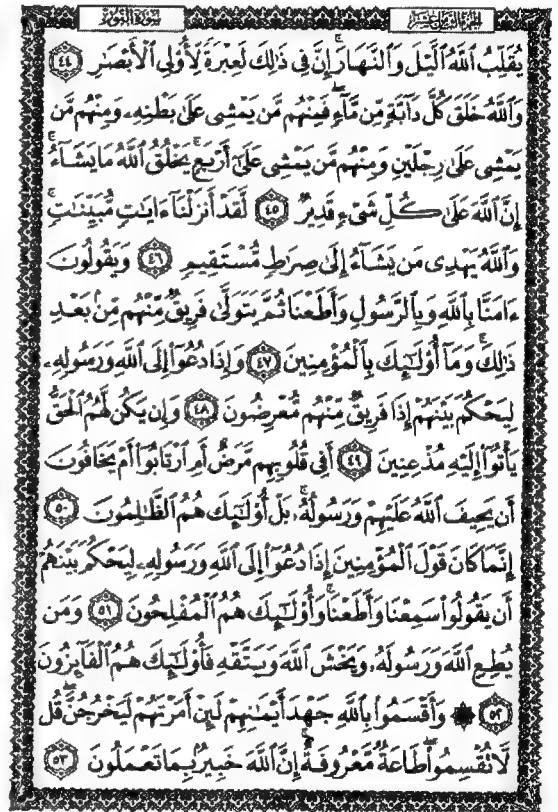 سُورَةُ النُّورِ
الجزء الثامن عشر
يُقَلِّبُ ٱللَّهُ ٱلَّيۡلَ وَٱلنَّهَارَۚ إِنَّ فِي ذَٰلِكَ لَعِبۡرَةٗ لِّأُوْلِي ٱلۡأَبۡصَٰرِ ٤٤
وَٱللَّهُ خَلَقَ كُلَّ دَآبَّةٖ مِّن مَّآءٖۖ فَمِنۡهُم مَّن يَمۡشِي عَلَىٰ بَطۡنِهِۦ وَمِنۡهُم مَّن
يَمۡشِي عَلَىٰ رِجۡلَيۡنِ وَمِنۡهُم مَّن يَمۡشِي عَلَىٰٓ أَرۡبَعٖۚ يَخۡلُقُ ٱللَّهُ مَا يَشَآءُۚ
إِنَّ ٱللَّهَ عَلَىٰ كُلِّ شَيۡءٖ قَدِيرٞ ٤٥ لَّقَدۡ أَنزَلۡنَآ ءَايَٰتٖ مُّبَيِّنَٰتٖۚ
وَٱللَّهُ يَهۡدِي مَن يَشَآءُ إِلَىٰ صِرَٰطٖ مُّسۡتَقِيمٖ ٤٦ وَيَقُولُونَ
ءَامَنَّا بِٱللَّهِ وَبِٱلرَّسُولِ وَأَطَعۡنَا ثُمَّ يَتَوَلَّىٰ فَرِيقٞ مِّنۡهُم مِّنۢ بَعۡدِ
ذَٰلِكَۚ وَمَآ أُوْلَٰٓئِكَ بِٱلۡمُؤۡمِنِينَ ٤٧ وَإِذَا دُعُوٓاْ إِلَى ٱللَّهِ وَرَسُولِهِۦ
لِيَحۡكُمَ بَيۡنَهُمۡ إِذَا فَرِيقٞ مِّنۡهُم مُّعۡرِضُونَ ٤٨ وَإِن يَكُن لَّهُمُ ٱلۡحَقُّ
يَأۡتُوٓاْ إِلَيۡهِ مُذۡعِنِينَ ٤٩ أَفِي قُلُوبِهِم مَّرَضٌ أَمِ ٱرۡتَابُوٓاْ أَمۡ يَخَافُونَ
أَن يَحِيفَ ٱللَّهُ عَلَيۡهِمۡ وَرَسُولُهُۥۚ بَلۡ أُوْلَٰٓئِكَ هُمُ ٱلظَّٰلِمُونَ ٥٠
إِنَّمَا كَانَ قَوۡلَ ٱلۡمُؤۡمِنِينَ إِذَا دُعُوٓاْ إِلَى ٱللَّهِ وَرَسُولِهِۦ لِيَحۡكُمَ بَيۡنَهُمۡ
أَن يَقُولُواْ سَمِعۡنَا وَأَطَعۡنَاۚ وَأُوْلَٰٓئِكَ هُمُ ٱلۡمُفۡلِحُونَ ٥١ وَمَن
يُطِعِ ٱللَّهَ وَرَسُولَهُۥ وَيَخۡشَ ٱللَّهَ وَيَتَّقۡهِ فَأُوْلَٰٓئِكَ هُمُ ٱلۡفَآئِزُونَ
٥٢ ۞ وَأَقۡسَمُواْ بِٱللَّهِ جَهۡدَ أَيۡمَٰنِهِمۡ لَئِنۡ أَمَرۡتَهُمۡ لَيَخۡرُجُنَّۖ قُل
لَّا تُقۡسِمُواْۖ طَاعَةٞ مَّعۡرُوفَةٌۚ إِنَّ ٱللَّهَ خَبِيرُۢ بِمَا تَعۡمَلُونَ ٥٣